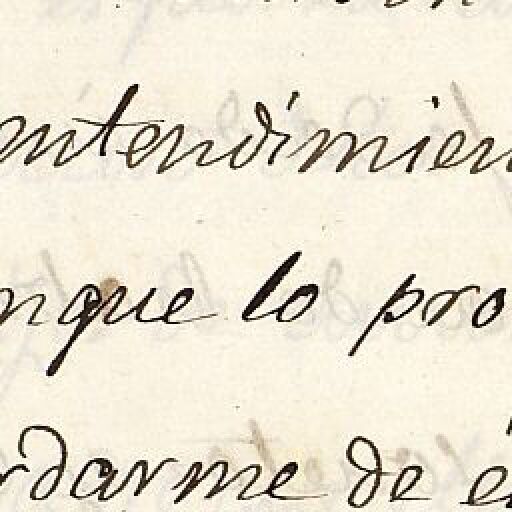 entendimien
nque lo pro
rdarme de é